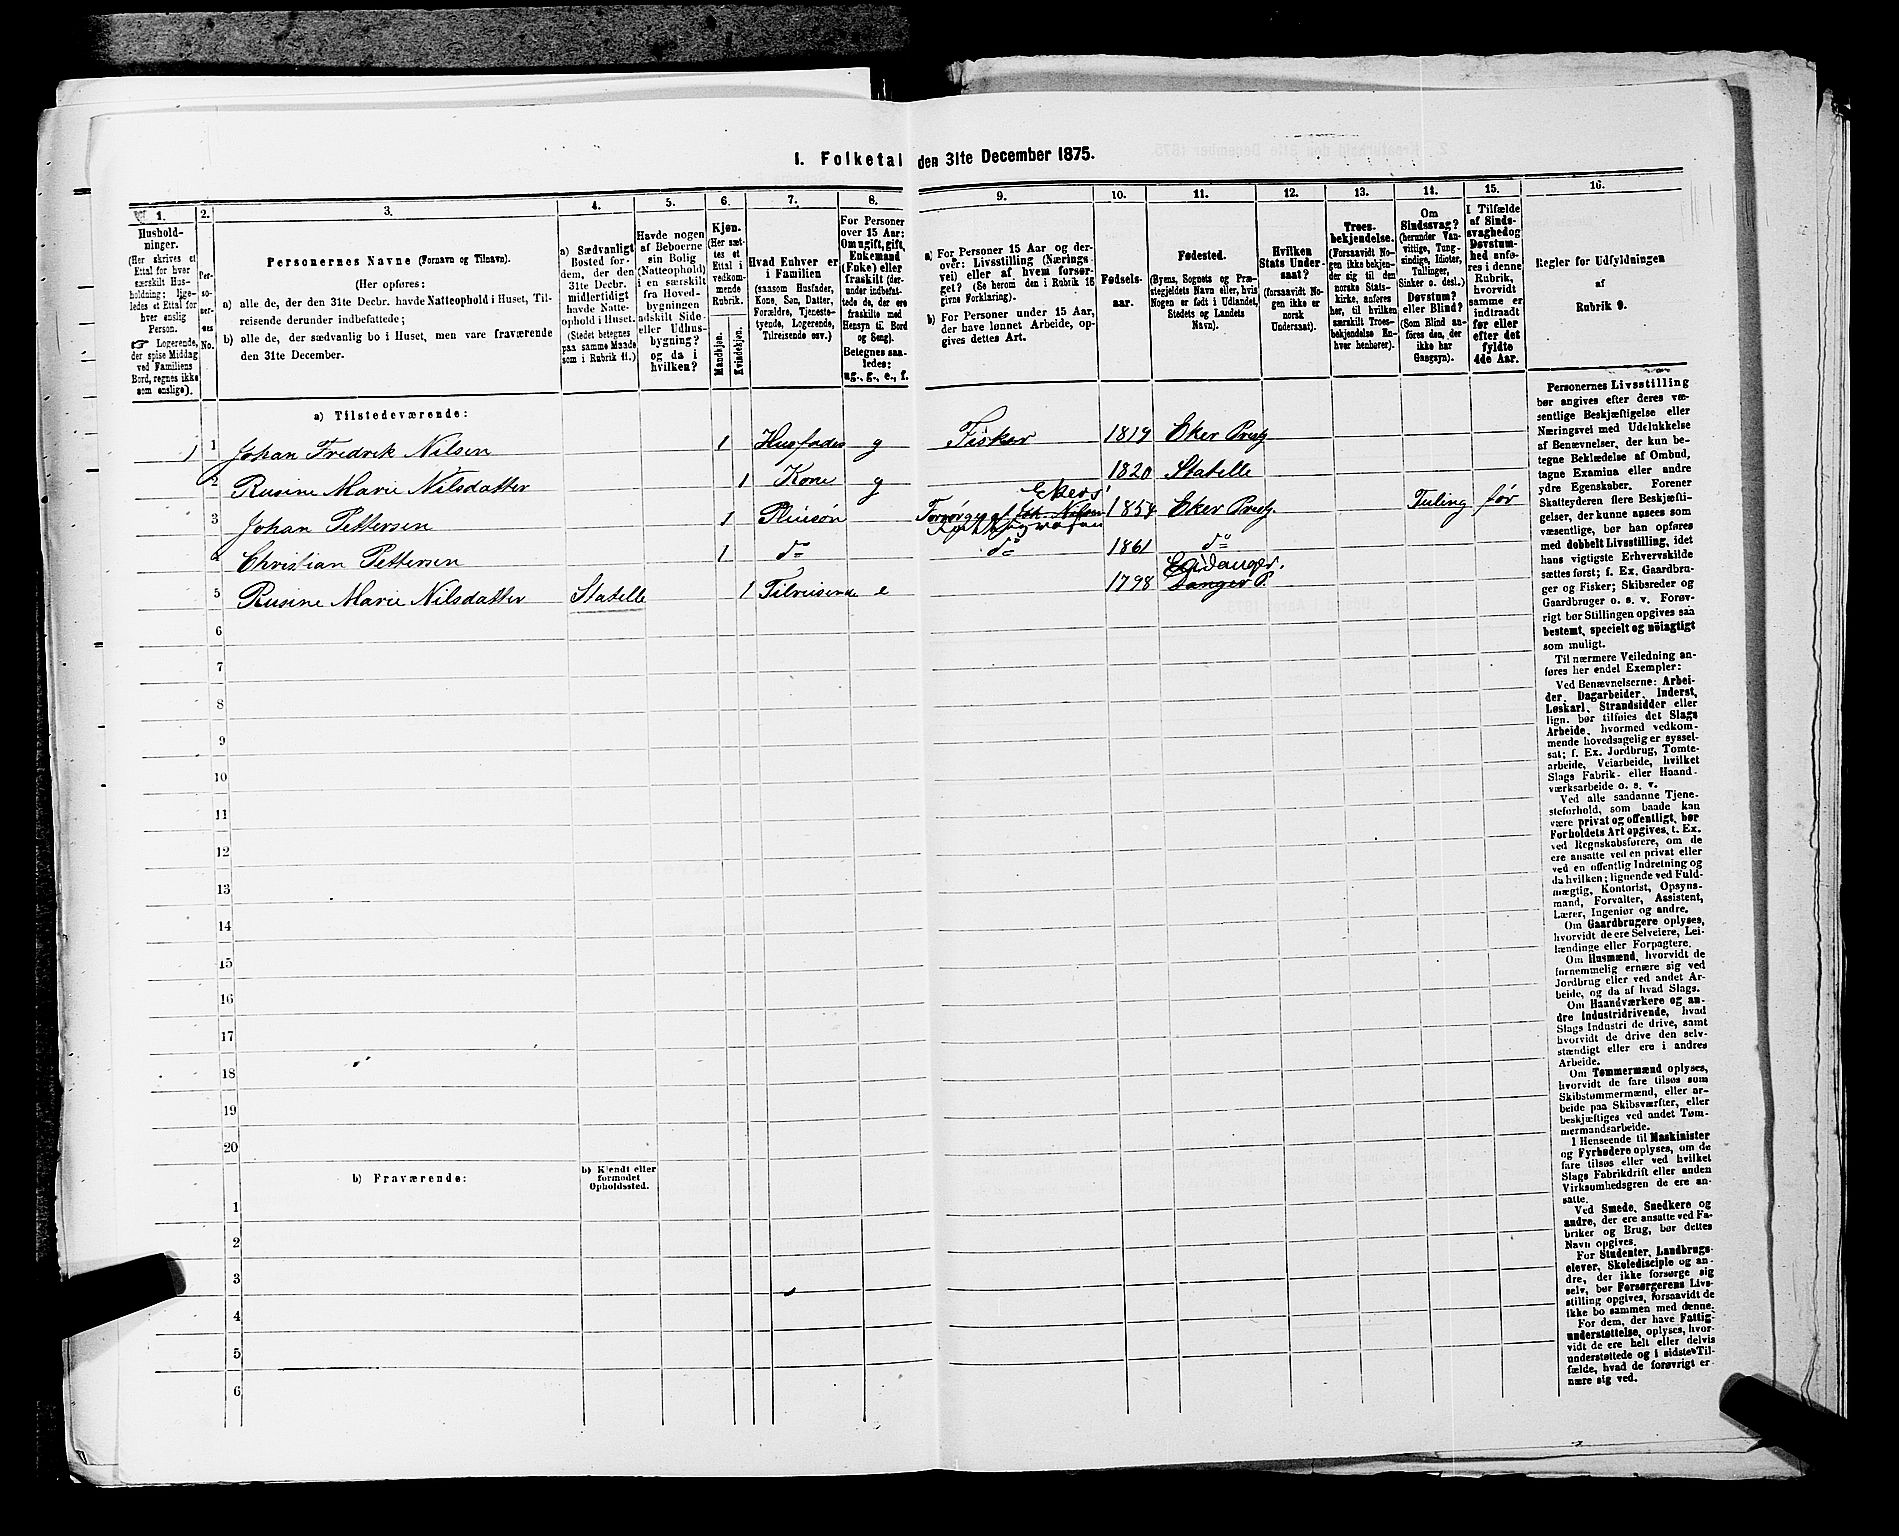 1. Folketal den 31te December 1875.
1.
Husholdninger.
(Her skrives et
Ettal for hver
særskilt Husholdning;
ligeledes et Ettal for
hver enslig
Person.
☞ Logerende,
der spise Middag
ved Familiens
Bord, regnes ikke
som enslige).
2.
Personernes
No.
3.
Personernes Navne (Fornavn og Tilnavn).
(Her opføres:
a) alle de, der den 31te Decbr. havde Natteophold i Huset, Tilreisende derunder indbefattede;
b) alle de, der sædvanlig bo i Huset, men vare fraværende
den 31te December.
4.
a) Sædvanligt
Bosted for
dem, der den
31te Decbr.
midlertidigt
havde Natteophold i Huset.
(Stedet betegnes
paa samme Maade
som i Rubrik 11.)
5.
Havde nogen
af Beboerne
sin Bolig
(Natteophold)
i en særskilt
fra Hovedbygningen
adskilt Side-
eller Udhusbygning?
og da i
hvilken?
6.
Kjøn.
(Her sættes et
Ettal i
vedkommende
Rubrik.
Mandkjøn.
Kvindekjøn.
7.
Hvad Enhver er
i Familien
(saasom Husfader,
Kone, Søn, Datter,
Forældre, Tjenestetyende, Logerende,
Tilreisende osv.)
8.
For Personer
over 15 Aar:
Om ugift, gift,
Enkemand
(Enke) eller
fraskilt (derunder indbefattede de, der ere
fraskilte med
Hensyn til Bord
og Seng).
Betegnes saaledes:
ug., g., e., f.
9.
a) For Personer 15 Aar og derover: Livsstilling (Næringsvei) eller af hvem forsørget? (Se herom den i Rubrik 16
givne Forklaring).
b) For Personer under 15 Aar,
der have lønnet Arbeide, opgives dettes Art.
10.
Fødselsaar.
11.
Fødested.
(Byens, Sognets og Præstegjeldets Navn eller, hvis
Nogen er født i Udlandet,
Stedets og Landets
Navn).
12.
Hvilken
Stats Undersaat?
(forsaavidt Nogen ikke er
norsk
Undersaat).
13.
Troesbekjendelse.
(Forsaavidt Nogen ikke bekjender sig til den
norske Statskirke, anføres
her, til hvilken
særskilt Troesbekjendelse Enhver henhører).
14.
Om
Sindssvag?
(herunder Vanvittige, Tungsindige, Idioter,
Tullinger,
Sinker o. desl.)
Døvstum?
eller Blind?
(Som Blind anføres den, der
ikke har
Gangsyn).
15.
I Tilfælde
af Sindssvaghed og
Døvstumhed anføres i denne
Rubrik,
hvorvidt
samme er
indtraadt
før eller
efter det
fyldte
4de Aar.
16.
Regler for Udfyldningen
af
Rubrik 9.
a) Tilstedeværende:
1 1 Johan Fredrik Nilsen 1 Husfader g Fisker 1819 Eker Prestg
2 Rusine Marie Nilsdatter 1 Kone g 1820 Statelle
3 Johan Pettersen 1 Pleiesøn Forsørges af Joh. Nilsen Ekers Fattigvæsen 1854 Eker Prestg. Tuling før
4 Christian Pettersen 1 do do 1861 do
5 Rusine Marie Nilsdatter Statelle 1 Tilreisende e 1798 Danger P. Eidanger.
6
7
8
9
10
11
12
13
14
15
16
17
18
19
20
b) Fraværende:
b) Kjendt eller
formodet
Opholdssted.
1
2
3
4
5
6
Personernes Livsstilling
bør angives efter deres væsentlige Beskjæftigelse eller
Næringsvei med Udelukkelse
af Benævnelser, der kun betegne Beklædelse af Ombud,
tagne Examina eller andre
ydre Egenskaber. Forener
Skatteyderen flere Beskjæftigelser, der kunne ansees som
væsentlige, bør han opføres
med dobbelt Livsstilling, idet
hans vigtigste Erhvervskilde
sættes først; f. Ex. Gaardbruger og Fisker; Skibsreder og
Gaardbruger o. s. v. Forøvrigt bør Stillingen opgives saa
bestemt, specielt og nöiagtigt
som muligt.
Til nærmere Veiledning anføres her endel Exempler:
Ved Benævnelserne: Arbeider, Dagarbeider, Inderst,
Løskarl, Strandsidder eller
lign. bør tilføies det Slags
Arbeide, hvormed vedkommende hovedsagelig er sysselsat; f. Ex. Jordbrug, Tomtearbeide, Veiarbeide, hvilket
Slags Fabrik- eller Haandværksarbeide o. s. v.
Ved alle saadanne Tjenesteforhold, som baade kan
være privat og offentligt, bør
Forholdets Art opgives, t. Ex.
ved Regnskabsførere, om de
ere ansatte ved en privat eller
ved en offentlig Indretning og
da hvilken; lignende ved Fuldmægtig, Kontorist, Opsynsmand, Forvalter, Assistent,
Lærer, Ingeniør og andre.
Om Gaardbrugere oplyses,
hvorvidt de ere Selveiere, Leilændinge eller Forpagtere.
Om Husmænd, hvorvidt de
fornemmelig ernære sig ved
Jordbrug eller ved andet Arbeide, og da af hvad Slags.
Om Haandværkere og andre Industridrivende, hvad
Slags Industri de drive, samt
hvorvidt de drive den selvstændigt eller ere i andres
Arbeide.
Om Tømmermænd oplyses,
hvorvidt de fare tilsøs som
Skibstømmermænd, eller arbeide paa Skibsværfter, eller
beskjæftiges ved andet Tømmermandsarbeide.
I Henseende til Maskinister
og Fyrbødere oplyses, om de
fare tilsøs eller ved hvilket
Slags Fabrikdrift eller anden
Virksomhedsgren de ere ansatte.
Ved Smede, Snedkere og
andre, der ere ansatte ved Fabriker og Brug, bør dettes
Navn opgives.
For Studenter, Landbrugselever, Skoledisciple og andre, der ikke forsørge sig
selv, bør Forsørgerens Livsstilling opgives, forsaavidt de
ikke bo sammen med denne.
For dem, der have Fattigunderstøttelse, oplyses, hvorvidt de ere helt eller delvis
understøttede og i sidste Tilfælde, hvad de forøvrigt ernære sig ved.